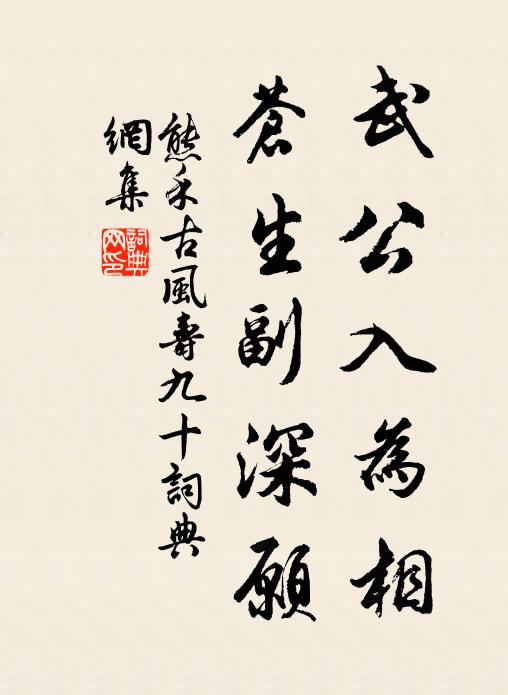 武公入為相
蒼生副深願
熊禾古風壽九十詞典
網集
詞典
网印